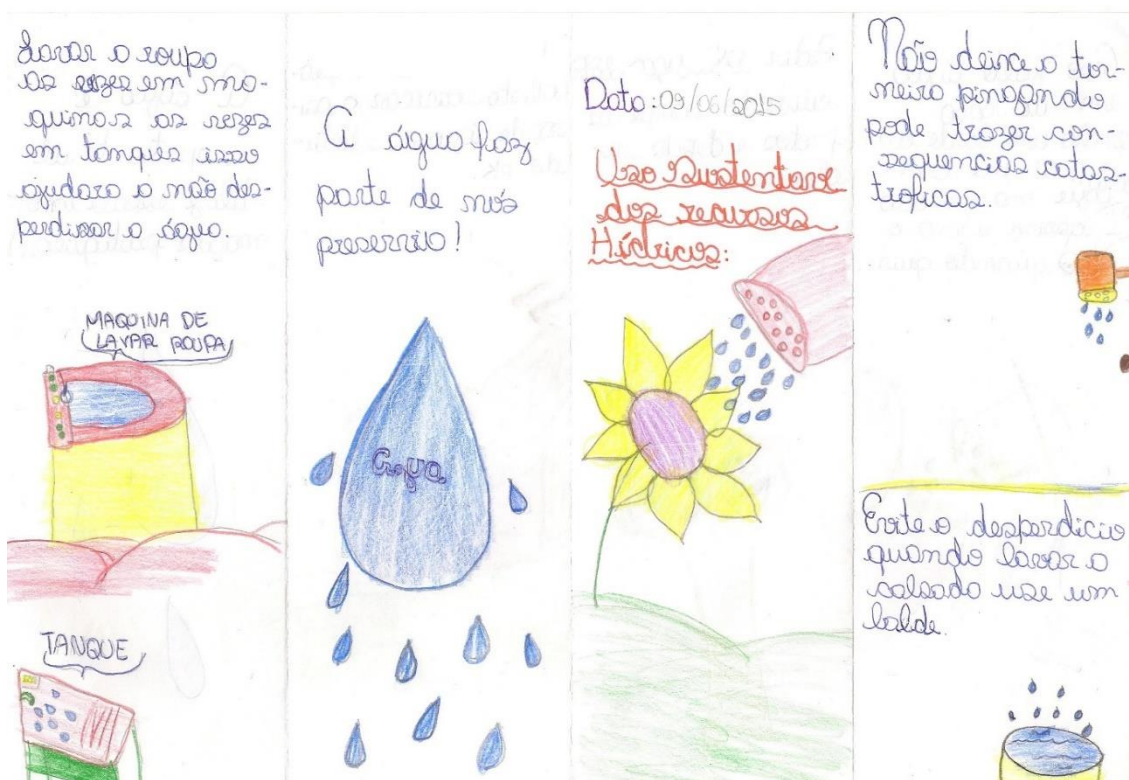 Lavar a roupa
as vezes em ma-
quinas as vezes
em tanques isso
ajudara a não des-
perdiçar a água.
MAQUINA DE
LAVAR ROUPA
TANQUE
A água faz
parte de nós
preserve!
Água
Data: 09/06/2015
Uso Sustentave
dos recursos
Hídricos:
Não deixe a tor-
neira pingando
pode trazer con-
sequencias catas-
troficas.
Evite o desperdicio
quando lavar a
calsada use um
balde.